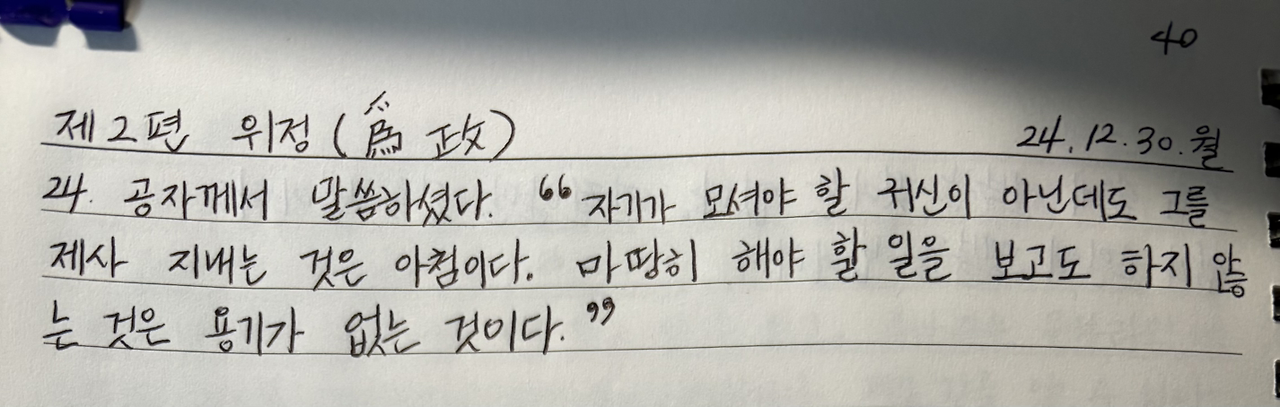 40
제2편 위정(爲政) 24.12.30.월
24. 공자께서 말씀하셨다. “자기가 모셔야 할 귀신이 아닌데도 그를
제사 지내는 것은 아첨이다. 마땅히 해야 할 일을 보고도 하지 않
는 것은 용기가 없는 것이다.”